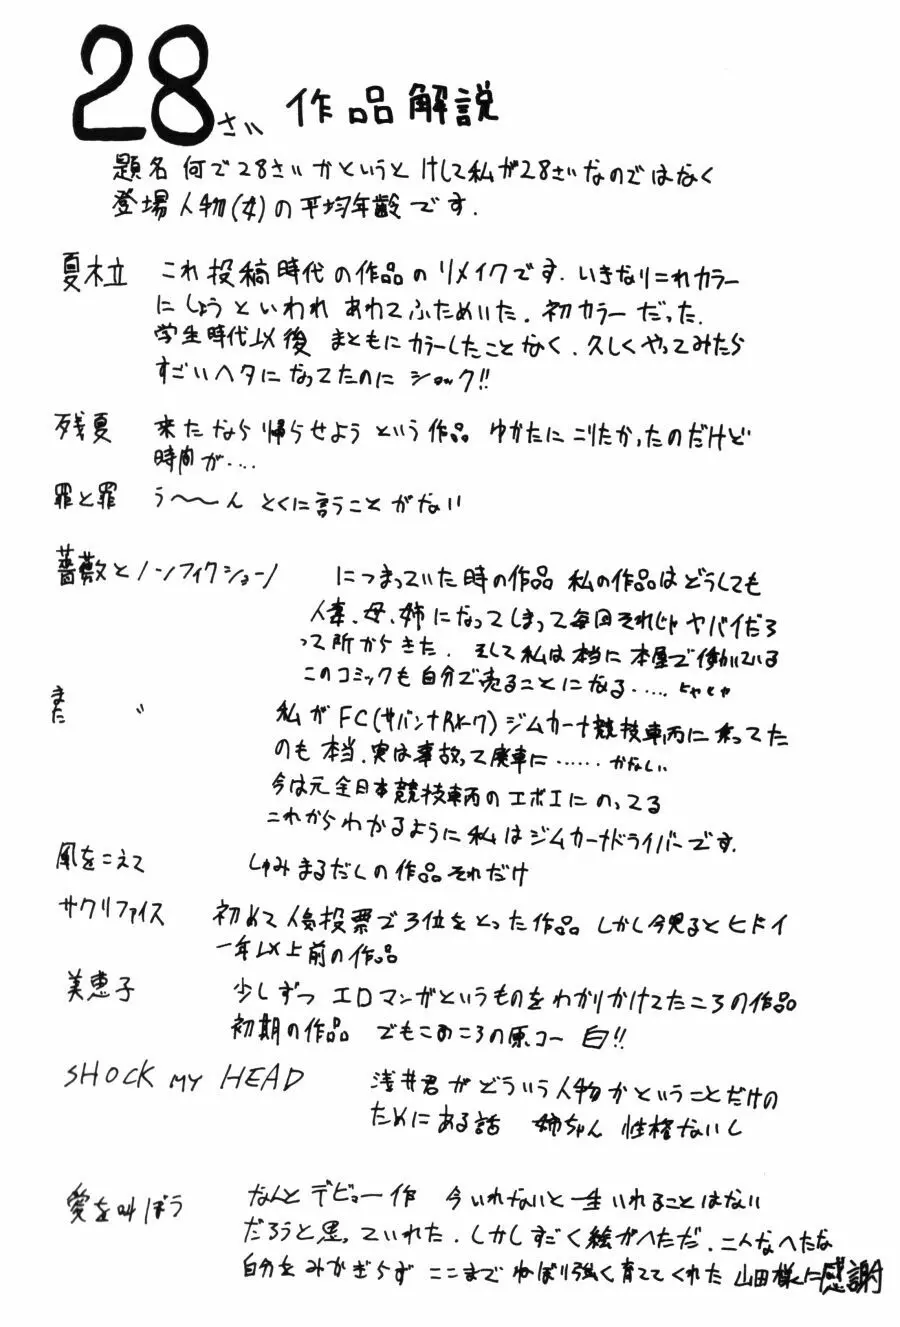 28さい 作品解説
題名 何で28さいかというと けして私が28さいなのではなく
登場人物(女)の平均年齢です.
夏木立 これ投稿時代の作品のリメイクです. いきなりこれカラー
にしようといわれ あわてふためいた. 初カラーだった.
学生時代以後 まともにカラーしたことなく. 久しくやってみたら
すごいヘタになってたのに ショック!!
残夏 来たなら帰らせようという作品 ゆかたにこりたかったのだけど
時間が....
罪と罪 う〜〜ん とくに言うことがない
薔薇とノンフィクション につまっていた時の作品 私の作品はどうしても
人妻、母、姉になってしまって毎回それじゃヤバイだろ
って所からきた. そして私は本当に本屋で働いている
このコミックも自分で売ることになる.....ヒヤヒヤ
また 〃 私がFC(サバンナRX-7)ジムカーナ競技車両に乗ってた
のも本当.実は事故って廃車に......かなしい
今は元全日本競技車両のエボIにのってる
これからわかるように私はジムカーナドライバーです.
風をこえて しゅみまるだしの作品それだけ
サクリファイス 初めて人気投票で3位をとった作品 しかし今見るとヒドイ
一年以上前の作品
美恵子 少しずつ エロマンガというものをわかりかけてたころの作品
初期の作品 でもこのころの原コー 白!!
SHOCK MY HEAD 浅井君がどういう人物かということだけの
ためにある話 姉ちゃん 性格ないし
愛を叫ぼう なんとデビュー作 今いれないと一生いれることはない
だろうと思っていれた. しかしすごく絵がへただ. こんなへたな
自分をみかぎらず ここまでねばり強く育ててくれた 山田様に感謝